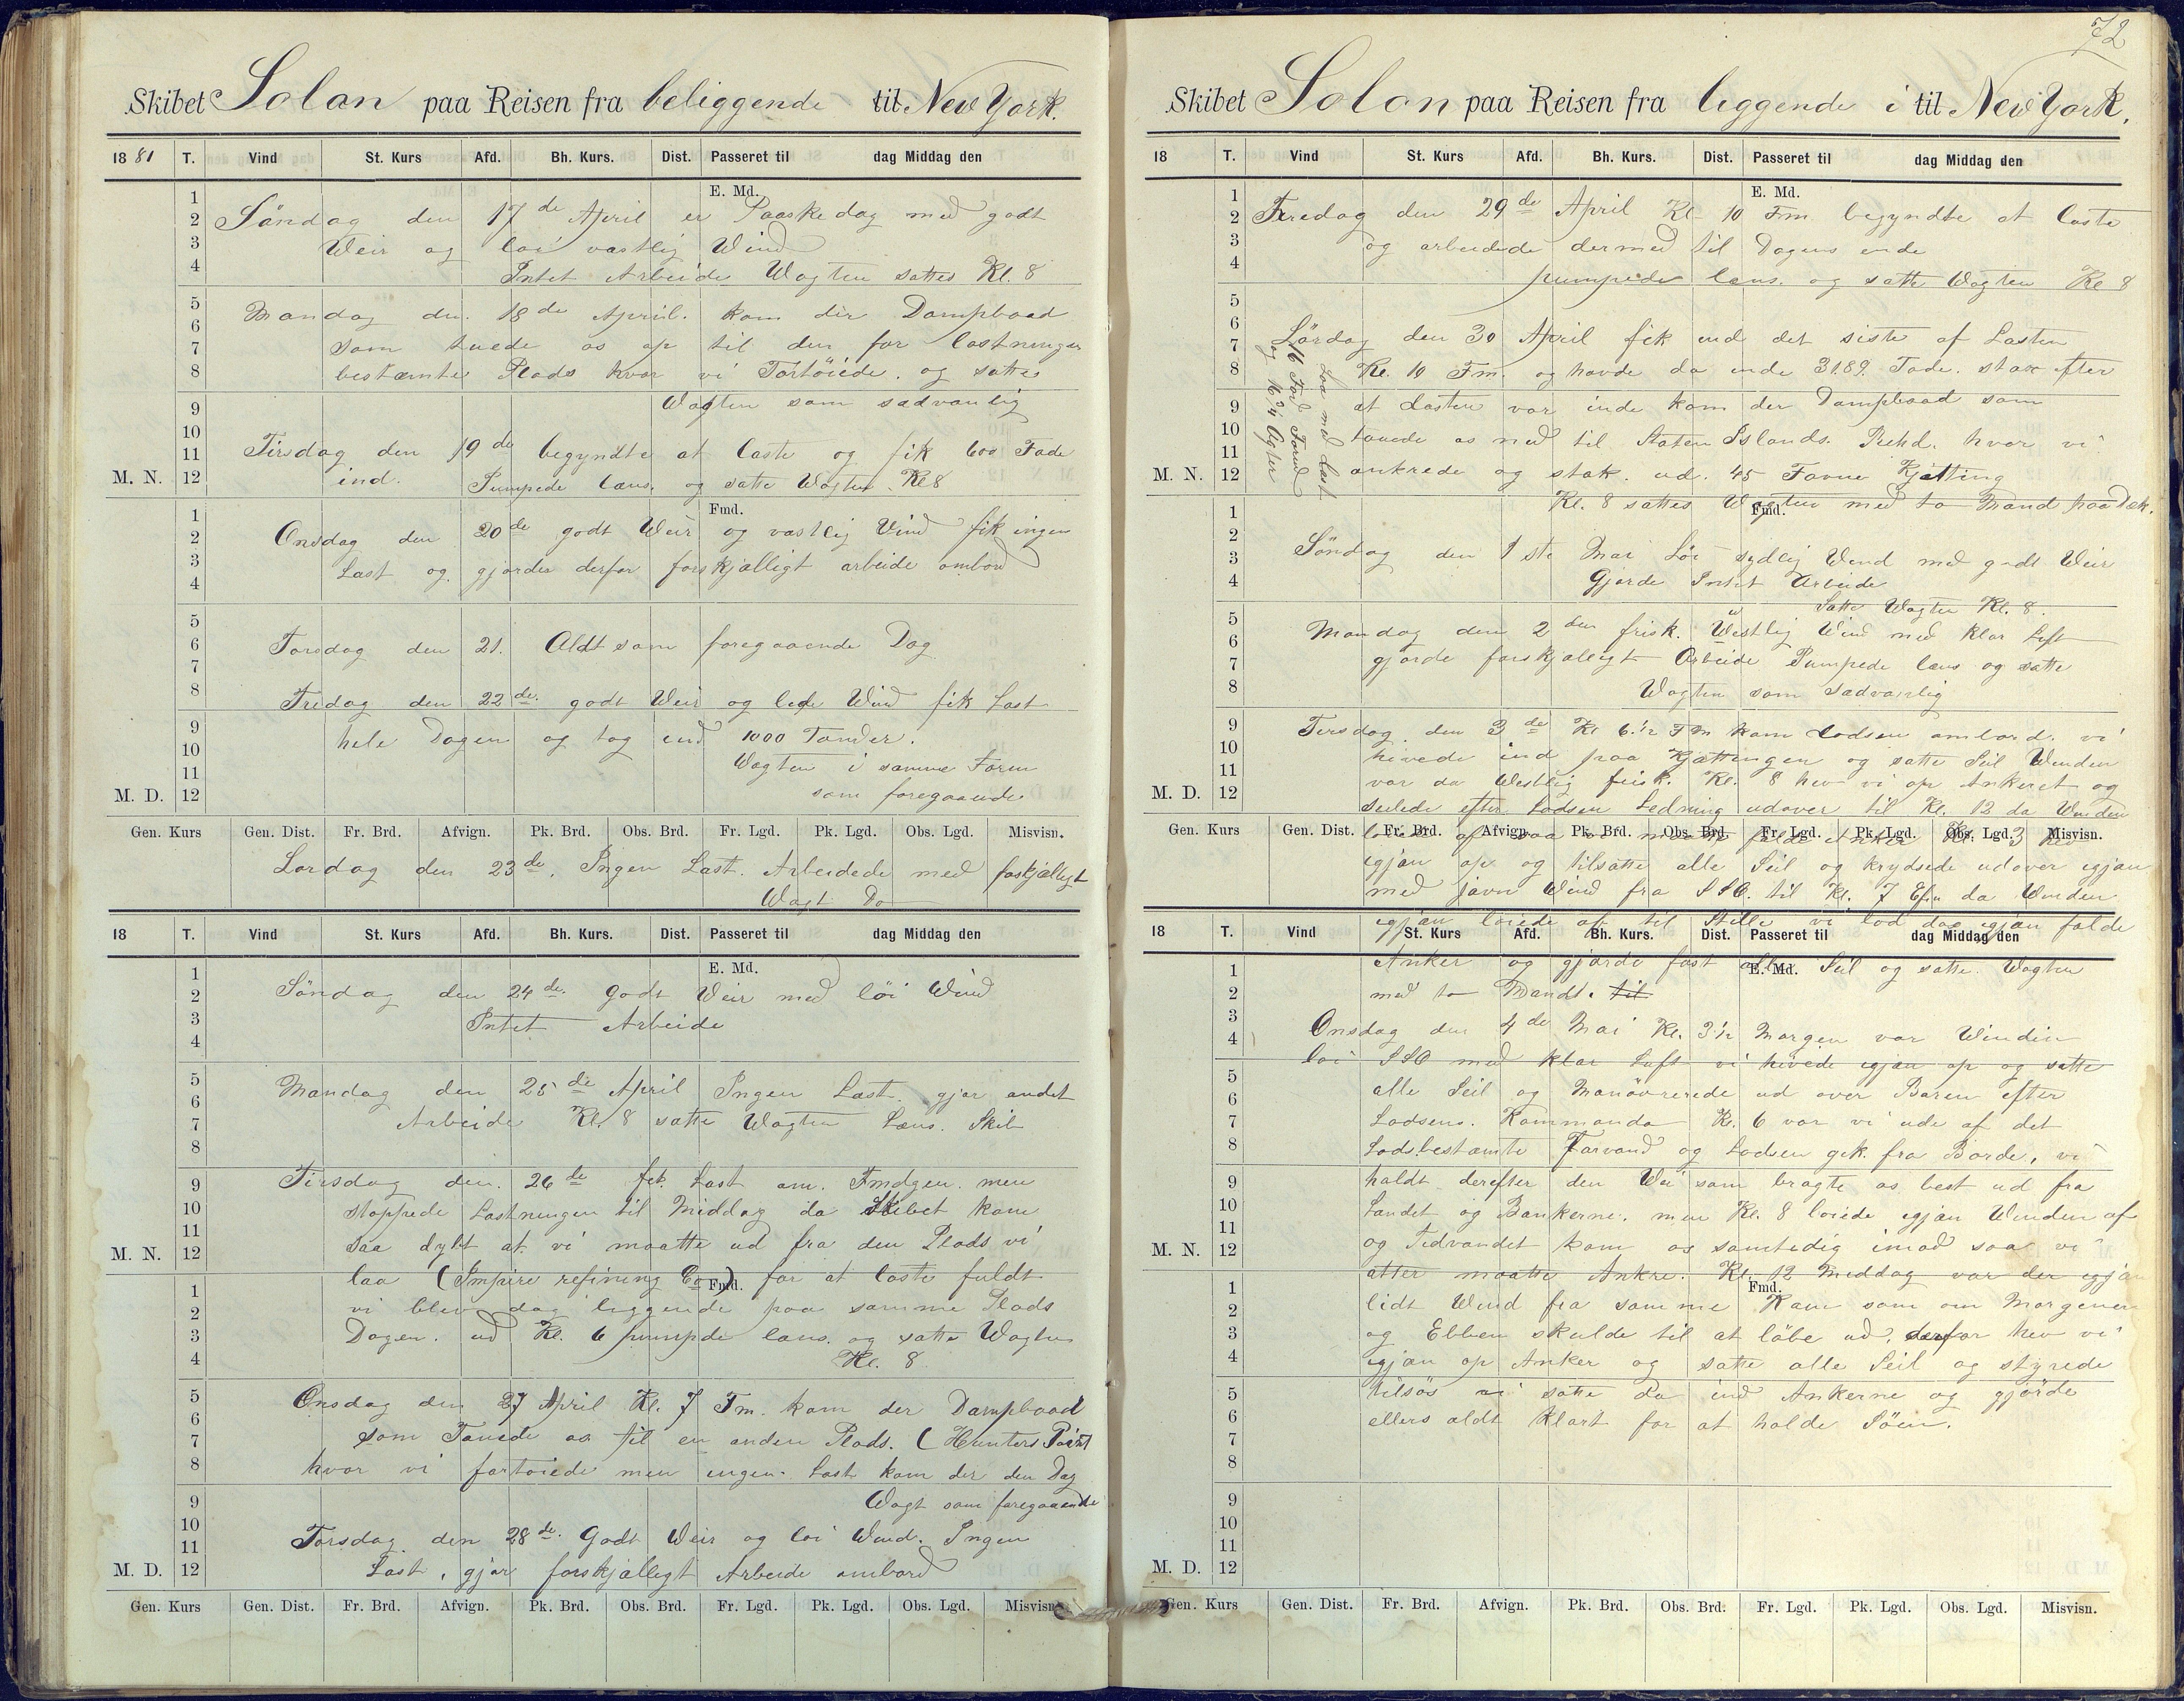 Skibet Solon paa Reisen fra beliggende til New York.
18 81 T. Vind St. Kurs Afd. Bh. Kurs. Dist. Passeret til dag Middag den
E. Md.
Söndag den 17de April er Paaskedag med godt
Veir og löi vestlig Wind
Intet Arbeide Wagten sattes Kl. 8
Mandag den 18de April. kom der Dampbaad
som tuede os op til den for lastningen
bestæmte Plads hvor vi Fortöiede. og sattes
Wagten som sædvanlig
Tirsdag den 19de begyndte at laste og fik 600 Fade
M. N. ind. Pumpede læns. og satte Wagten. Kl 8
Fmd.
Onsdag den 20de godt Weir og vestlig Vind fik ingen
Last og gjordes derfor forskjælligt arbeide ombord
Torsdag den 21. Aldt som foregaaende Dag
Fredag den 22de. godt Weir og lede Wind fik Last
hele Dagen og tog ind 1000 Tønder.
Wagten i samme Form
M. D. som foregaaende
Gen. Kurs Gen. Dist. Fr. Brd. Afvign. Pk. Brd. Obs. Brd. Fr. Lgd. Pk. Lgd. Obs. Lgd. Misvisn.
Lørdag den 23de. Ingen Last. Arbeidede med foskjælligt
Wagt Do
18 T. Vind St. Kurs Afd. Bh. Kurs. Dist. Passeret til dag Middag den
E. Md.
Söndag den 24de. Godt Veir med löi Wind
Intet Arbeide
Mandag den 25de April Ingen Last. gjør andet
Arbeide Kl. 8 satte Wagten Læns. Skib
Tirsdag den. 26de fik Last om. Fmdgen. men
stoppede Lastningen til Middag da Skibet kom
M. N. saa dybt at vi maatte ud fra den Plads vi
laa (Empire refining Co) for at laste fuldt
Fmd.
vi blev dog liggende paa samme Plads
Dagen. ud Kl. 6 pumpde læns. og satte Wagten
Kl. 8
Onsdag den 27 April Kl. 7 Fm. kom der Dampbaad
som Touede os til en anden Plads. (Hunters Point
hvor vi fortöiede men ingen. Last kom der den Dag
Wagt som foregaaende
Torsdag. den 28de. Godt Weir og löi Wind. Ingen
M. D. Last, gjør forskjælligt Arbeide ombord
Gen. Kurs Gen. Dist. Fr. Brd. Afvign. Pk. Brd. Obs. Brd. Fr. Lgd. Pk. Lgd. Obs. Lgd. Misvisn.
72
Skibet Solon paa Reisen fra liggende i til New York.
18 T. Vind St. Kurs Afd. Bh. Kurs. Dist. Passeret til dag Middag den
E. Md.
Fredag den 29de April Kl. 10 Fm. begyndte at laste
og arbeidede dermed til Dagens ende
pumpede læns. og satte Wagten Kl 8
Lördag den 30 April fik ind det siste af Lasten
Kl. 10 Fm. og havde da inde 3189. Fade. strax efter
at Lasten var inde kom der Dampbaad som
touede os ned til Staten Islands. Rehd. hvor vi
M. N. ankrede og stak. ud. 45 Favne Kjætting
Laa med Last
16 Fod Forud
og 16 3/4 Agter
Kl. 8 sattes Wagten med to Mand paa Dæk.
Fmd.
Söndag den 1ste Mai Löi sydlig Wind med godt Weir
Gjorde Intet Arbeide
Satte Wagten Kl. 8.
Mandag den 2den frisk. Westlig Wind med klar Luft
gjorde forskjælligt Arbeide Pumpede læns og satte
Wagten som sædvanlig
Tirsdag. den 3de Kl 6.1/2 Fm kom Lodsen ombord. vi
hivede ind paa Kjættingen og satte Seil Winden
var da Westlig frisk. Kl. 8 hev vi op Ankeret og
M. D. seilede efter Lodsens Ledning udover til Kl. 12 da Winden
Gen. Kurs Gen. Dist. Fr. Brd. Afvign. Pk. Brd. Obs. Brd. Fr. Lgd. Pk. Lgd. Obs. Lgd. Misvisn.
löiede af saa vi maatte falde Anker Kl. 3 hev
igjæn op og tilsatte alle Seil og krydsede udover igjæn
med jævn Wind fra SSO. til Kl. 7 Efm da Winden
igjæn löiede af til Stille vi lod dog igjæn falde
18 T. Vind St. Kurs Afd. Bh. Kurs. Dist. Passeret til dag Middag den
E. Md.
Anker og gjorde fast alle Seil og satte. Wagten
med to Mandt. til
Onsdag den 4de Mai Kl. 3 1/2 Morgen var Vinden
löi SSO med klar Luft vi hivede igjæn op og satte
alle Seil og Manövrerede ud over Baren efter
Lodsens. Kommando Kl. 6 var vi ude af det
Lodsbestæmte Farvand og Lodsen gik. fra Borde, vi
holdt derefter den Vei som bragte os best ud fra
Landet og Bankerne. men Kl. 8 löiede igjæn Winden af
M. N. og Tidvandet kom os samtidig imod saa vi
atter maatte Ankre. Kl. 12 Middag var der igjæn
Fmd.
lidt Wind fra samme Kant som om Morgenen
og Ebben skulde til at löbe ud, derfor hev vi
igjæn op Anker og satte alle Seil og styrede
tilsös vi satte da ind Ankerne og gjörde
ellers aldt klart for at holde Söen.
M. D.
Gen. Kurs Gen. Dist. Fr. Brd. Afvign. Pk. Brd. Obs. Brd. Fr. Lgd. Pk. Lgd. Obs. Lgd. Misvisn.